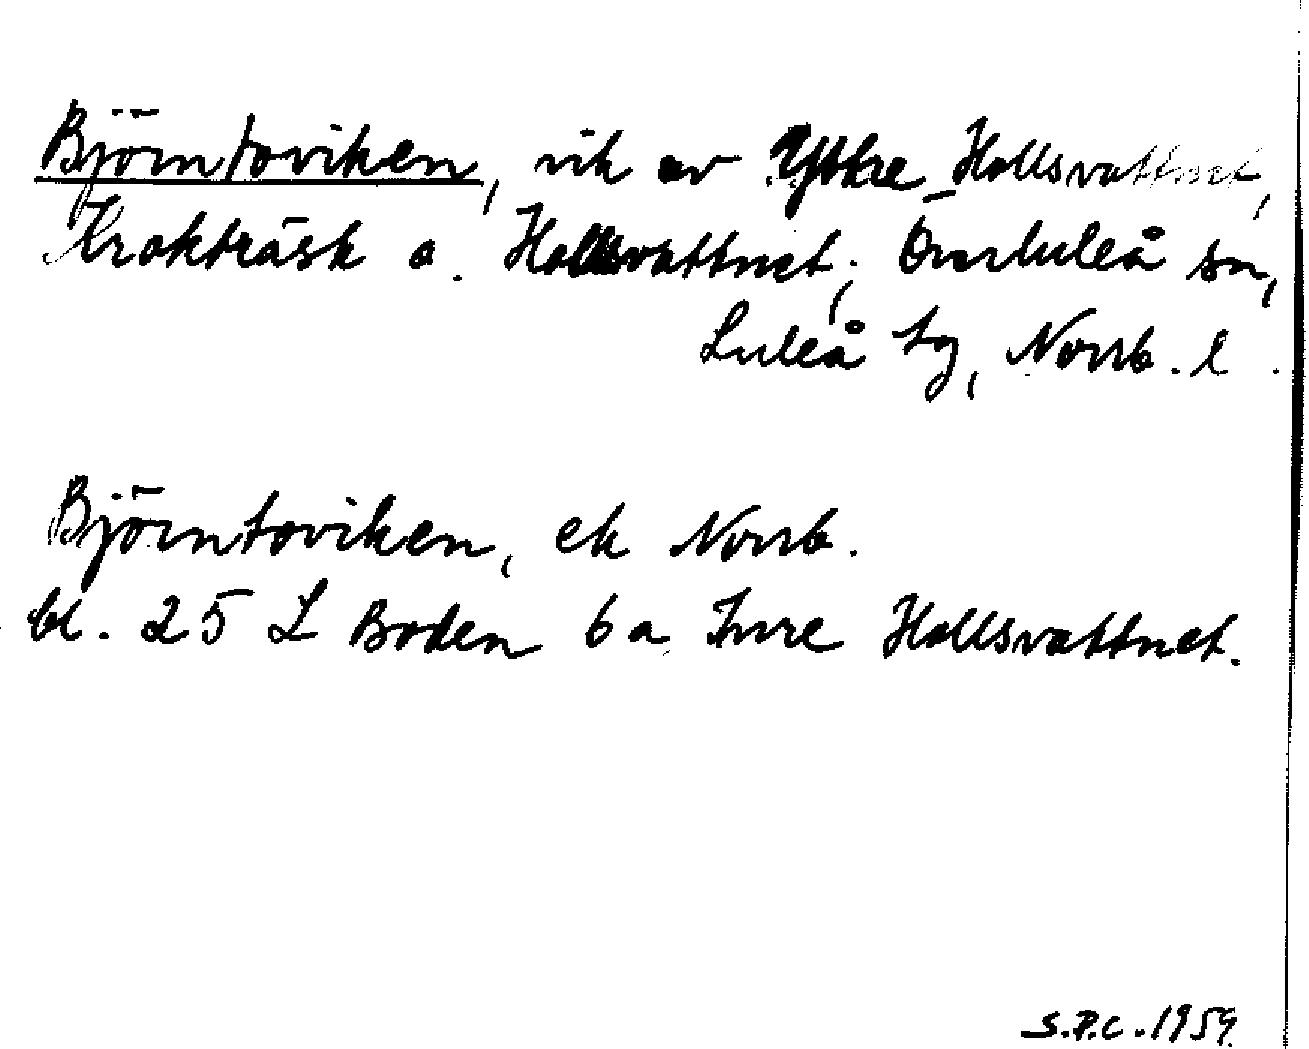 Björntoviken, vik av Yttre Hallsvattnet,
Krokträsk o. Hallsvattnet, Överluleå sn,
Luleå tg, Norrb. l.
Björntoviken, ek Norrb.
bl. 25 L Boden 6 a Inre Hallsvattnet.
S.P.C. 1959.